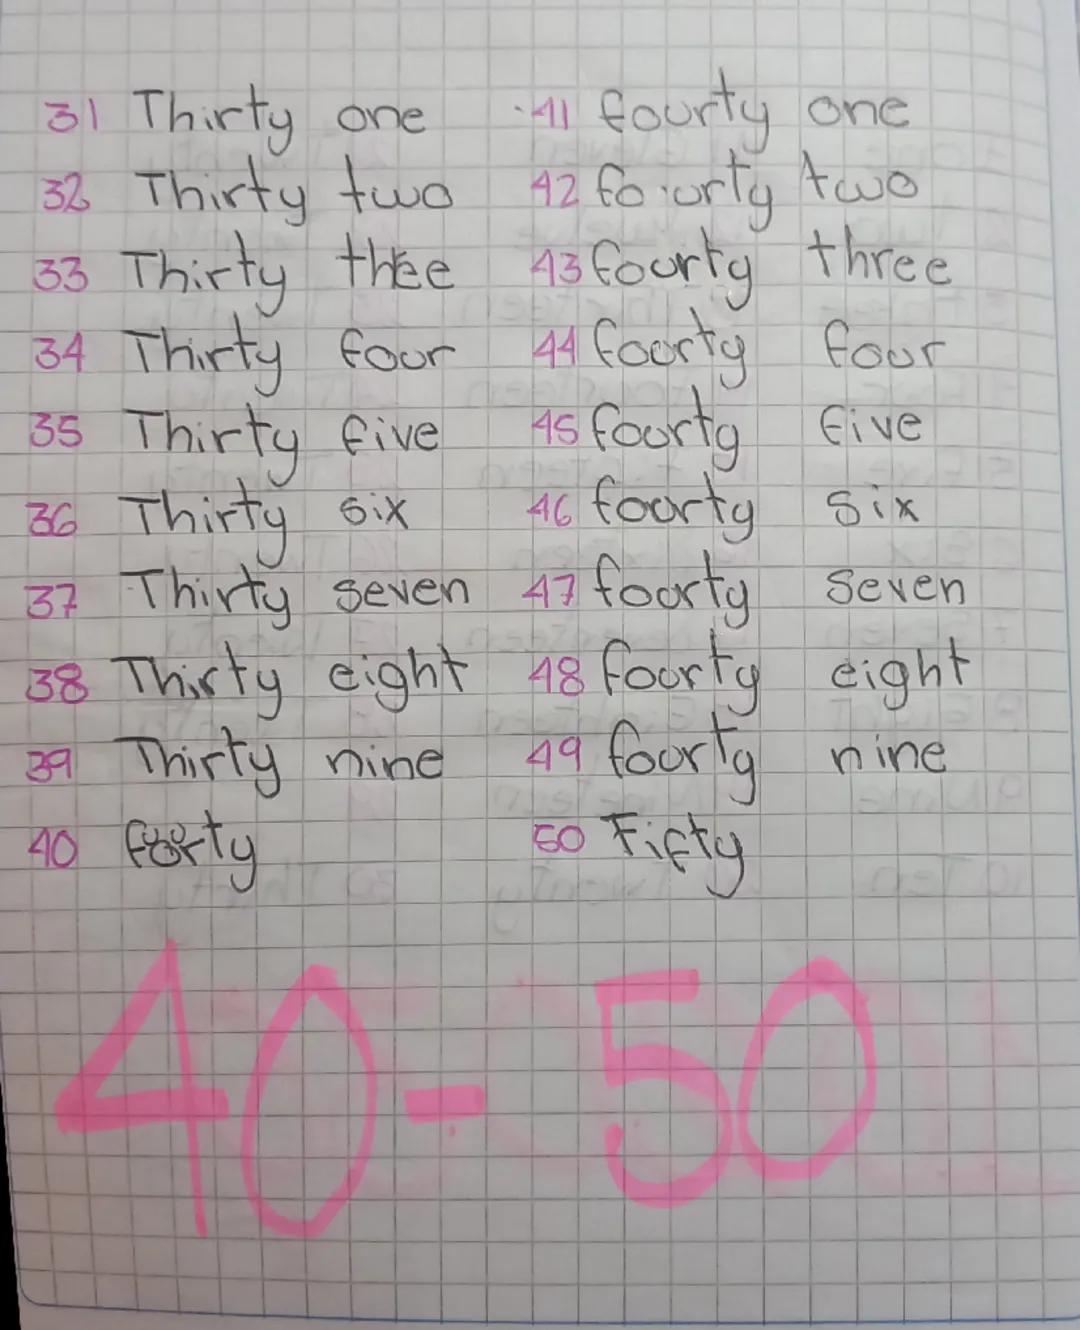 31 Thirty one
32 Thirty two
33 Thirty thee
34 Thirty four
35 Thirty five
36 Thirty six
37 Thirty seven
38 Thirty eight
39 Thirty nine
40 fourty
41 fourty one
42 fourty two
43 fourty three
44 fourty four
45 fourty five
46 fourty six
47 fourty seven
48 fourty eight
49 fourty nine
50 Fifty
40-50